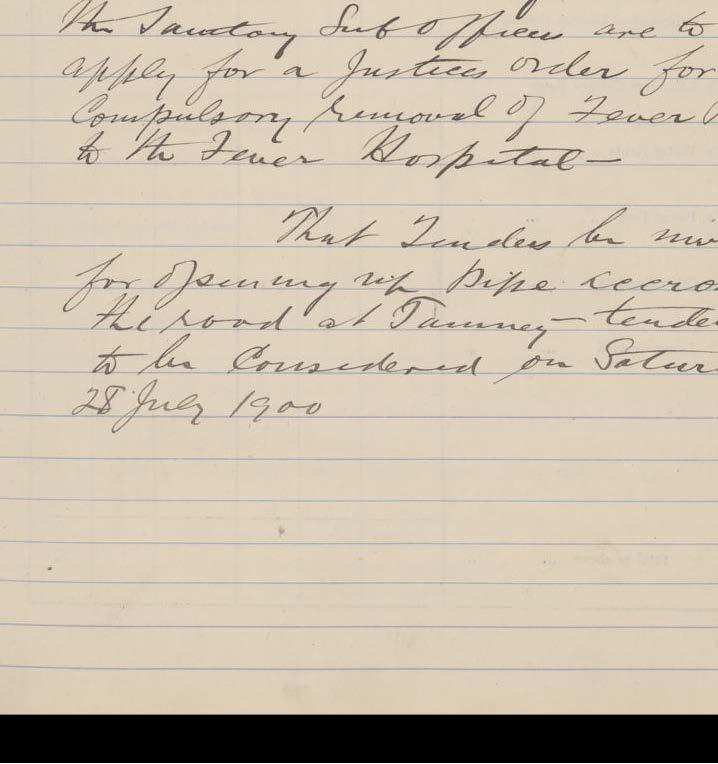 the Sanitary Sub Officers are to
apply for a Justices order for
Compulsory removal of Fever
to the Fever Hospital —
That Tenders be
for opening up pipe accro
the road at Tamney — tende
to be Considered on Satur
28 July 1900